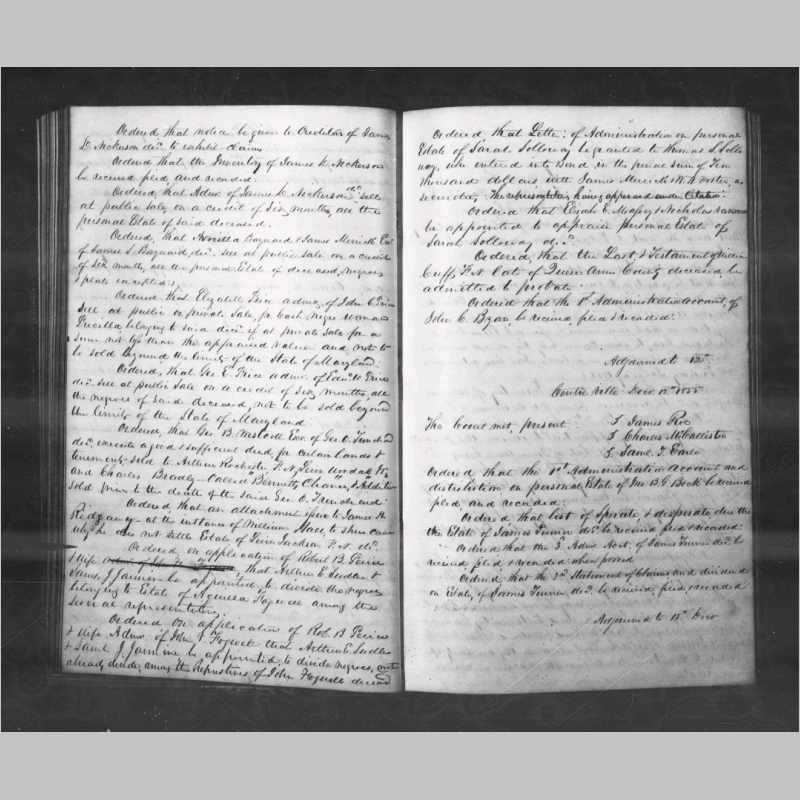 Ordered, that notice be given to Creditors of James
D. Nickerson decd. to exhibit claims
Ordered that the Inventory of James D. Nickerson
be received filed and recorded.
Ordered, that Admr of James D. Nickerson decd. sell
at public sale, on a credit of six months, all the
personal Estate of said deceased.
Ordered, that Baynard & James Merrick Exr
of James Baynard, decd. sell at public sale on a credit
of Six months, all the personal Estate of deceased, negroes
excepted;
Ordered that Elizabeth Price admx. of John C. Price
sell at public or private sale, for Cash, Negro woman
Priscilla, belonging to said decd. if at private sale for a
sum not less than the appraised value and not to
be sold beyond the limits of the State of Maryland.
Ordered, that Geo E. Price admr. of Edwd. Price
decd. sell at public sale on a credit of six months, all
the negroes of said deceased, not to be sold beyond
the limits of the State of Maryland
Ordered, that Geo. B. Exr. of Geo. O.
decd. execute a good & sufficient deed for certain lands &
tenements, sold to Arthur Rochester F.N.
and Charles Bradly - Called Bennetts Chance, & Addition
sold prior to the death of the said Geo. O.
Ordered that an attachment issue to James A.
Ridgaway at the instance of William to shew cause
why he does not settle Estate of Jackson F.N. decd.
Ordered on application of Robert B.
& wife, that Arthur E. Sudler &
Saml. J. be appointed, to divide the negroes
belonging to Estate of among the
several representatives
Ordered on application of Rob. B.
& wife Admx. of John that Arthur E. Sudler
& Saml. J. be appointed, to divide negroes, not
already divided, among the Representatives of John deceased
Ordered that Letters of Administration on personal
Estate of Sarah Solloway be granted to Thomas S. Sollo
way, who entered into Bond, in the penal sum of Ten
thousand dollars with James Merrick & W. A. as
securities, The representatives having appeared under Citation.
Ordered that Elijah E. Massey & Nicholas
be appointed to appraise personal Estate of
Sarah Solloway decd.
Ordered, that the Last & Testament of
Cuff, F.N. late of Queen Anns County deceased be
admitted to probate.
Ordered that the 1st Administration account, of
John C. be received, filed & recorded.
Adjourned to 12th.
Centreville Decr 12th 1855
The Court met, present
James Roe
Charles McCallister
Saml. T. Earle
Ordered that the 1st Administration account and
distribution on personal Estate of Jno B. G. be received
filed and recorded
Ordered that list of Sperate & desperate due the
the Estate of James decd. be received filed & recorded.
Ordered that the 3d Admn. Acct. of James decd. be
received filed & recorded when passed
Ordered that the 2nd Statement of Claims and dividend
on Estate, of James decd. be received, filed & recorded
Adjourned to 18th Decr